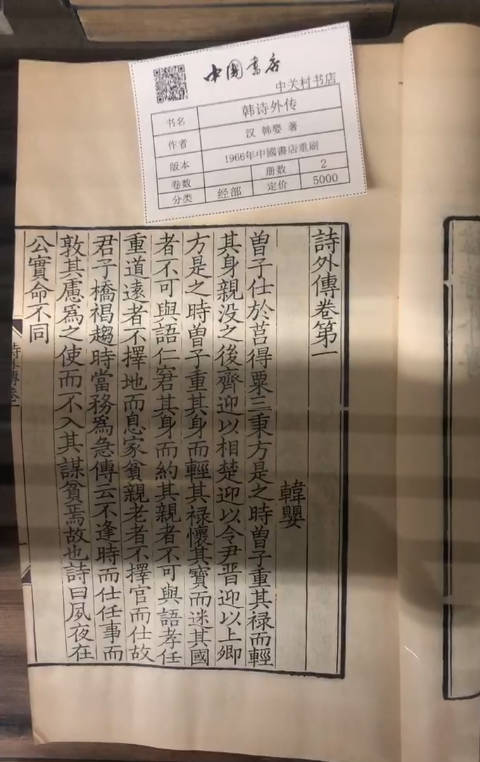 中國書店
中关村书店
书名 韩诗外传
作者 汉 韩婴 著
版本 1966年中國書店重刷
卷数 册数 2
分类 经部 定价 5000
詩外傳卷第一
韓嬰
曽子仕於莒得粟三秉方是之時曽子重其禄而輕
其身親没之後齊迎以相楚迎以令尹晋迎以上卿
方是之時曽子重其身而輕其禄懷其寳而迷其國
者不可與語仁窘其身而約其親者不可與語孝任
重道遠者不擇地而息家貧親老者不擇官而仕故
君子橋褐趨時當務爲急傳云不逢時而仕任事而
敦其慮爲之使而不入其謀貧焉故也詩曰夙夜在
公實命不同